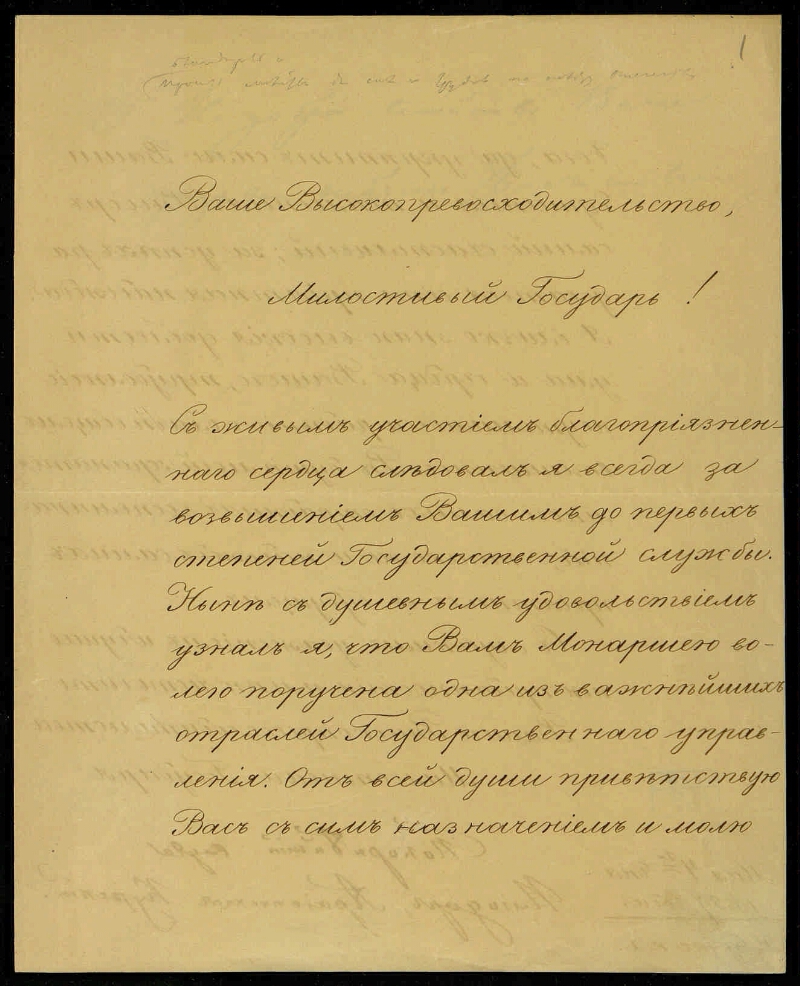 1
Ваше Высокопревосходительство,
Милостивый Государь !
Съ живымъ участіемъ благопріязнен-
наго сердца слѣдовалъ я всегда за
возвышеніемъ Вашимъ до первыхъ
степеней Государственной службы.
Нынѣ съ душевнымъ удовольствіемъ
узналъ я, что Вамъ Монаршею во-
лею поручена одна изъ важнѣйшихъ
отраслей Государственнаго управ-
ленія. Отъ всей души привѣтствую
Васъ съ симъ назначеніемъ и молю